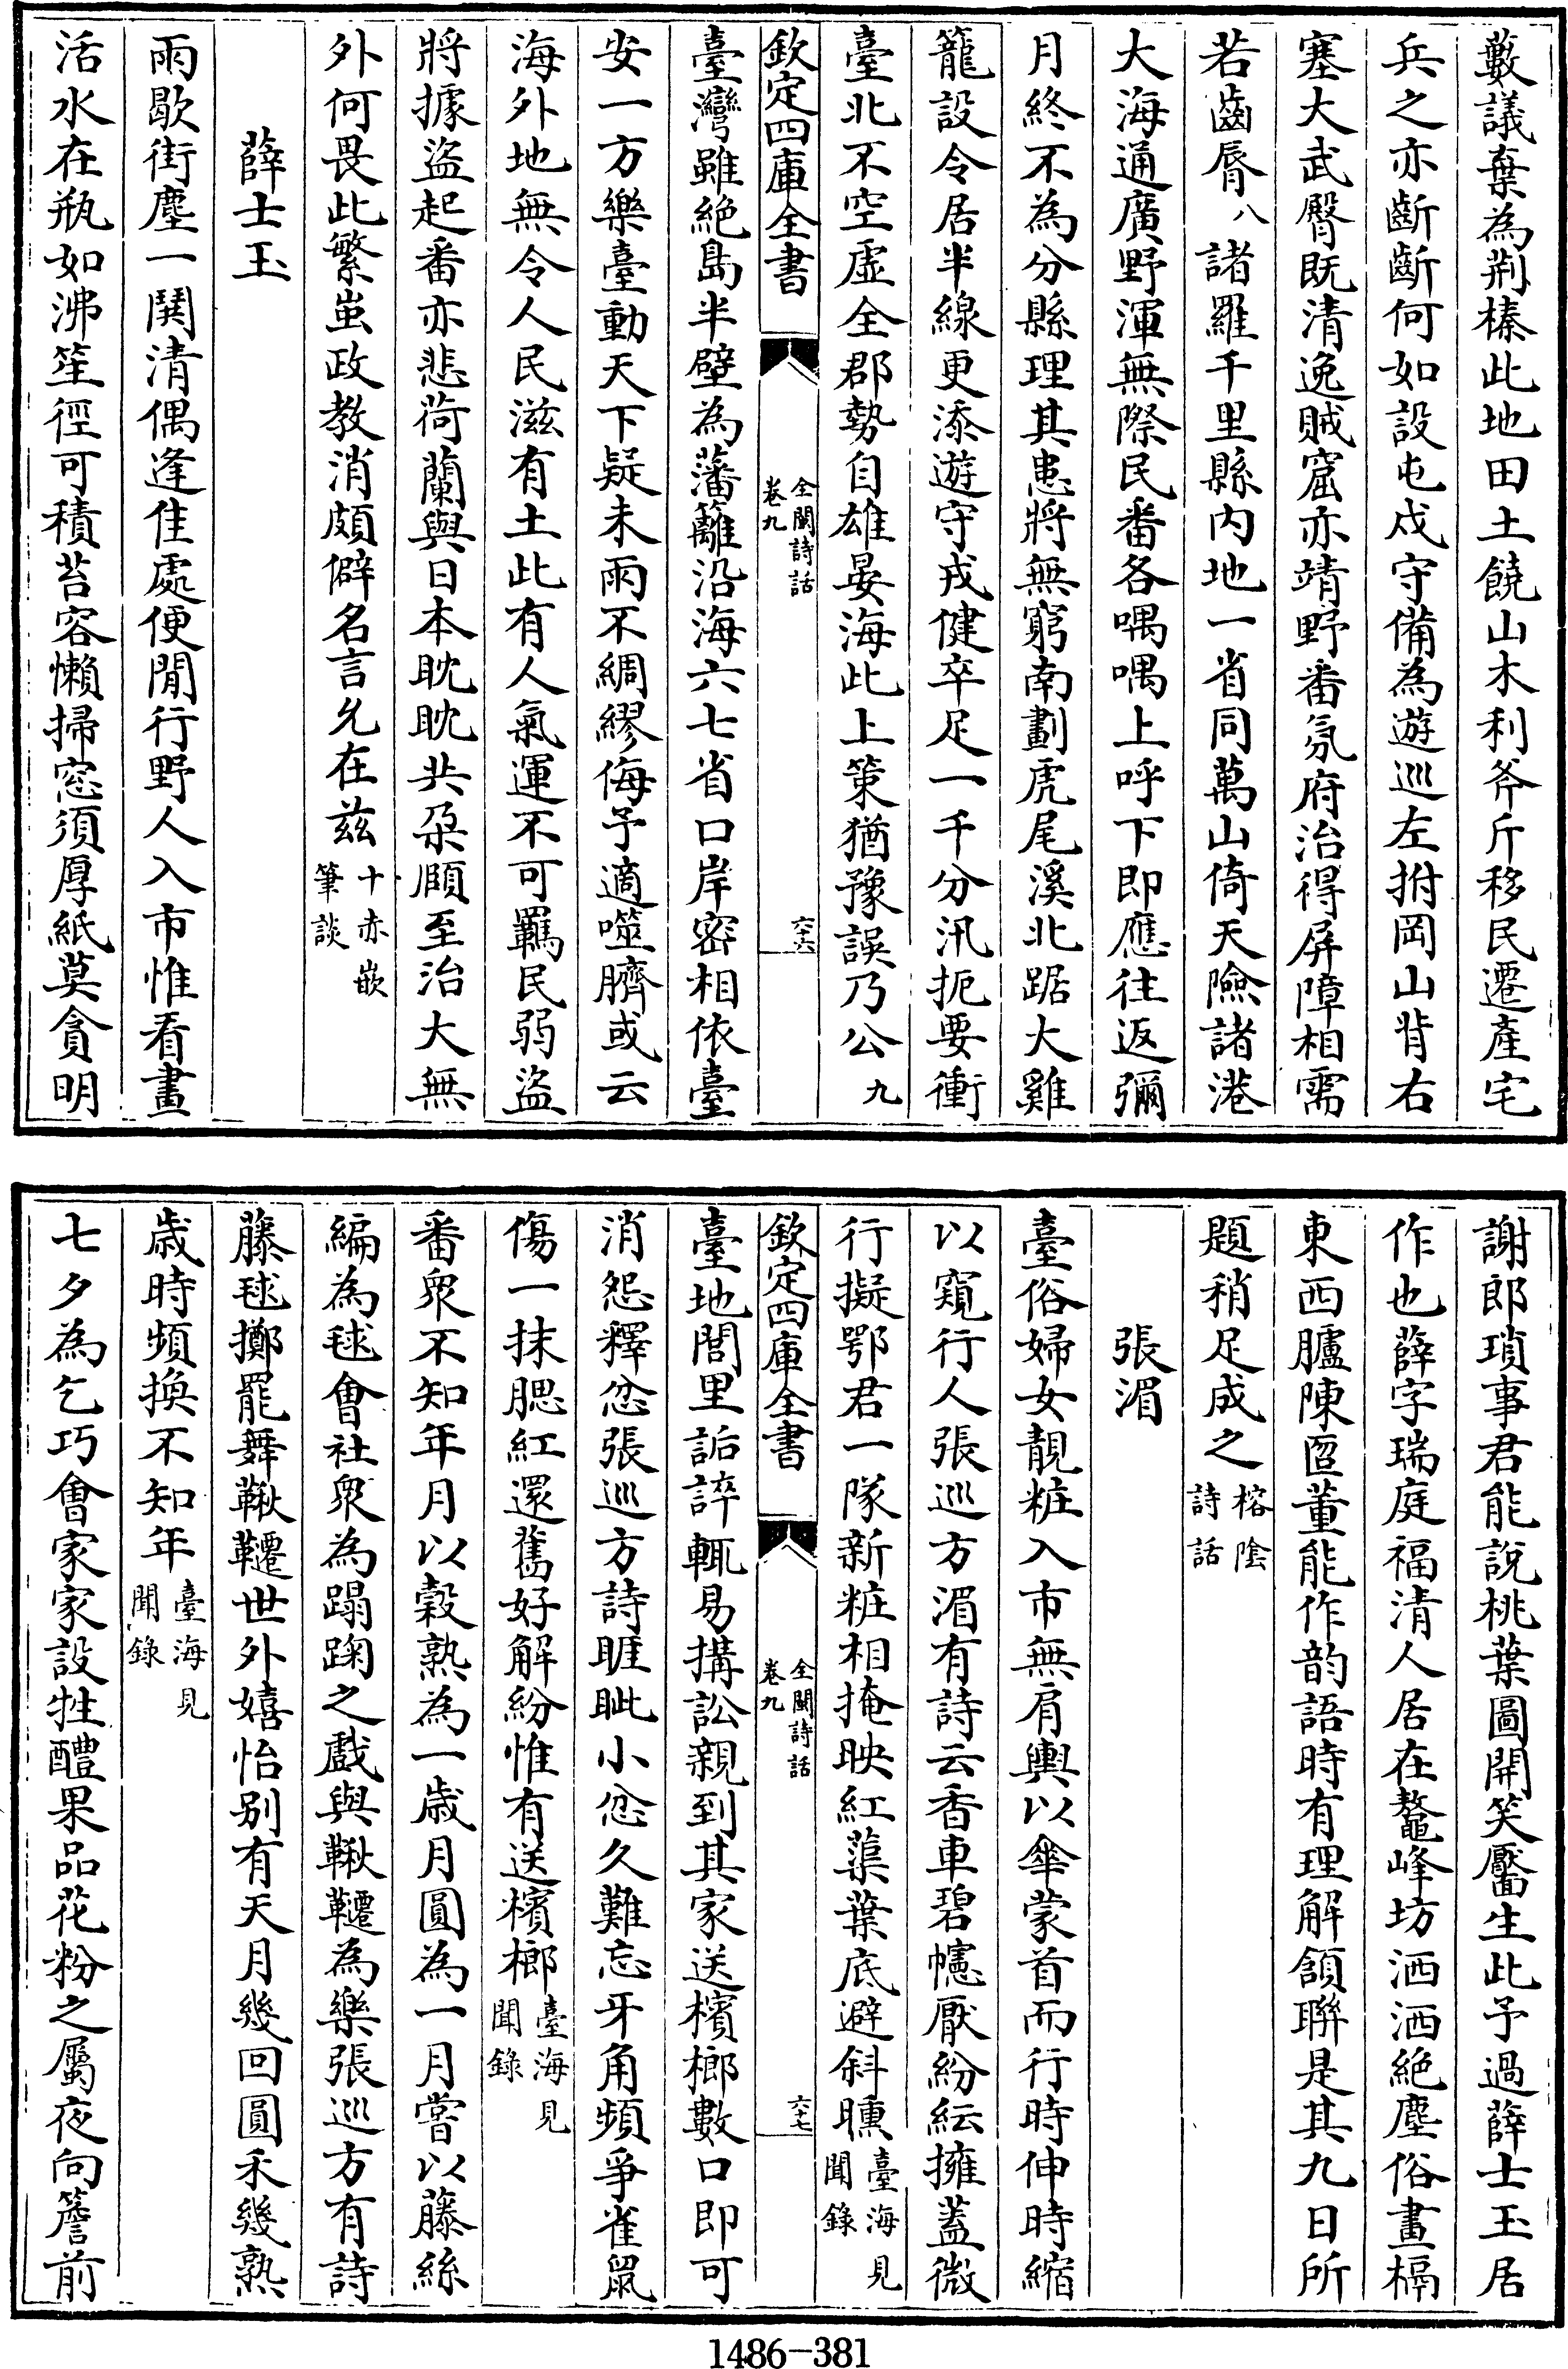 藪議棄為荆榛此地田土饒山木利斧斤移民遷產宅
兵之亦齗齗何如設屯戍守備為遊巡左拊岡山背右
塞大武臀既清逸賊窟亦靖野番氛府治得屏障相需
若齒脣八諸羅千里縣内地一省同萬山倚天險諸港
大海通廣野渾無際民番各喁喁上呼下即應往返彌
月終不為分縣理其患將無窮南劃虎尾溪北踞大雞
籠設令居半線更添遊守戎健卒足一千分汛扼要衝
臺北不空虛全郡勢自雄晏海此上策猶豫誤乃公九
欽定四庫全書
全閩詩話
卷九
六十六
臺灣雖絶島半壁為藩籬沿海六七省口岸密相依臺
安一方樂臺動天下疑未雨不綢繆侮予適噬臍或云
海外地無令人民滋有土此有人氣運不可羈民弱盜
將據盜起番亦悲荷蘭與日本耽耽共朶頤至治大無
外何畏此繁蚩政教消頗僻名言允在兹十赤嵌
筆談
薛士玉
雨歇街塵一鬨清偶逢佳處便閒行野人入市惟看畫
活水在瓶如沸笙徑可積苔容懶掃窓須厚紙莫貪明
謝郎瑣事君能說桃葉圖開笑靨生此予過薛士玉居
作也薛字瑞庭福清人居在鼇峰坊洒洒絶塵俗畫槅
東西臚陳匜董能作韵語時有理解頷聯是其九日所
題稍足成之榕陰
詩話
張湄
臺俗婦女靚粧入市無肩輿以傘蒙首而行時伸時縮
以窺行人張巡方湄有詩云香車碧幰厭紛紜擁蓋微
行擬鄂君一隊新粧相掩映紅蕖葉底避斜曛臺海見
聞錄
欽定四庫全書
全閩詩話
卷九
六十七
臺地閭里詬誶輒易搆訟親到其家送檳榔數口即可
消怨釋忿張巡方詩睚眦小忿久難忘牙角頻爭雀鼠
傷一抹腮紅還舊好解紛惟有送檳榔臺海見
聞錄
番衆不知年月以穀熟為一歲月圓為一月嘗以藤絲
編為毬會社衆為蹋踘之戲與鞦韆為樂張巡方有詩
藤毬擲罷舞鞦韆世外嬉怡别有天月幾回圓禾幾熟
歲時頻換不知年臺海見
聞錄
七夕為乞巧會家家設牲醴果品花粉之屬夜向簷前
1486-381